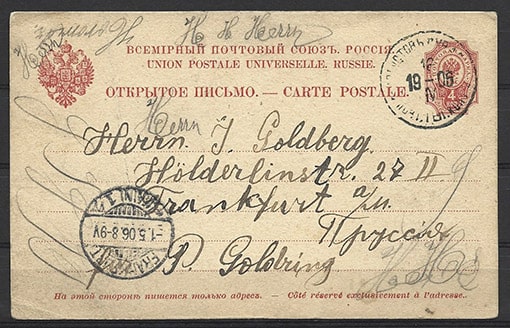 Н. Н. Herrn
ВСЕМІРНЫЙ ПОЧТОВЫЙ СОЮЗЪ. РОССІЯ.
UNION POSTALE UNIVERSELLE. RUSSIE.
ОТКРЫТОЕ ПИСЬМО. — CARTE POSTALE.
19 06
IV
4
Herrn
Herrn J. Goldberg
Hölderlinstr. 27 II
Frankfurt a/m.
Пруссія
FRANKFURT (MAIN) 1
-1.5.06.8-9V
P. Goldring
На этой сторонѣ пишется только адресъ. — Côté réservé exclusivement à l'adresse.